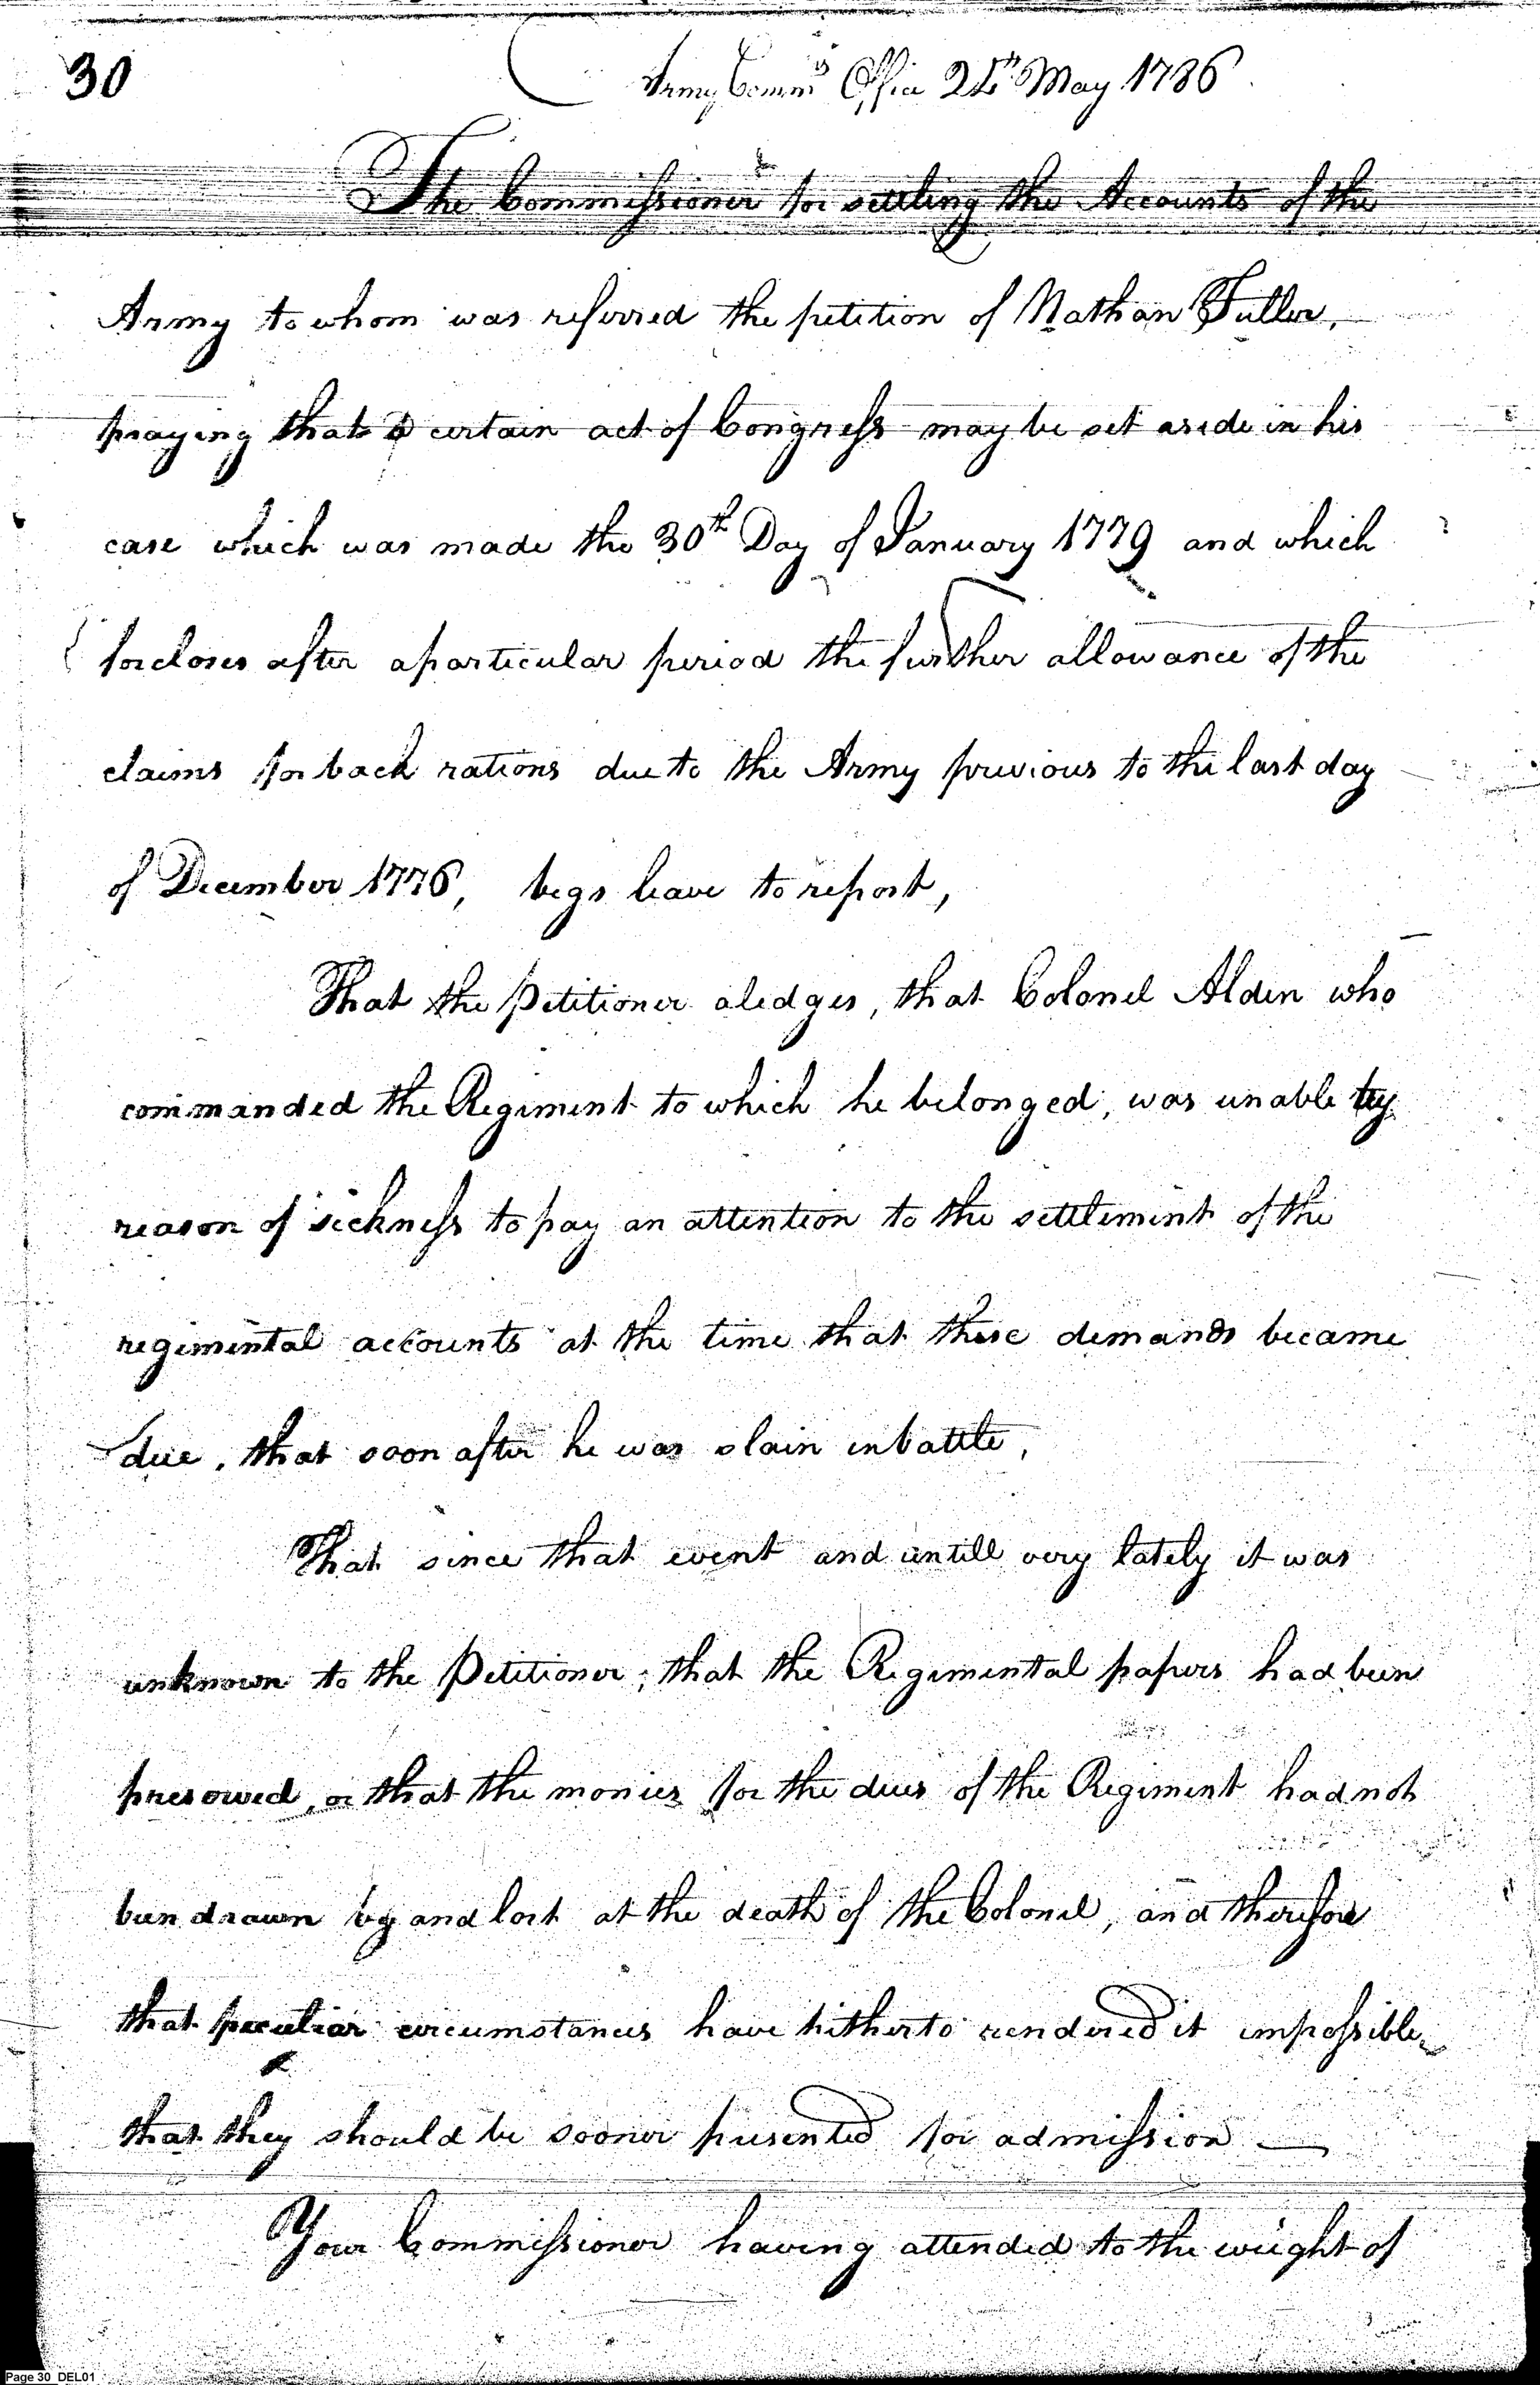 30
Army Comm.rs Office 24th May 1786
The Commissioner for settling the Accounts of the
Army to whom was referred the petition of Nathan Fuller,
praying that a certain act of Congress may be set aside in his
case which was made the 30th Day of January 1779 and which
forcloses after a particular period the further allowance of the
claims for back rations due to the Army previous to the last day
of December 1776, begs leave to report,
That the Petitioner aledges, that Colonel Alden who
commanded the Regiment to which he belonged, was unable by
reason of sickness to pay an attention to the settlement of the
regimental accounts at the time that these demands became
due, that soon after he was slain in battle,
That since that event and untill very lately it was
unknown to the Petitioner, that the Regimental papers had been
preserved, or that the monies for the dues of the Regiment had not
been drawn by and lost at the death of the Colonel, and therefore
that peculiar circumstances have hitherto rendered it impossible
that they should be sooner presented for admission —
Your Commissioner having attended to the weight of
Page 30 DEL01